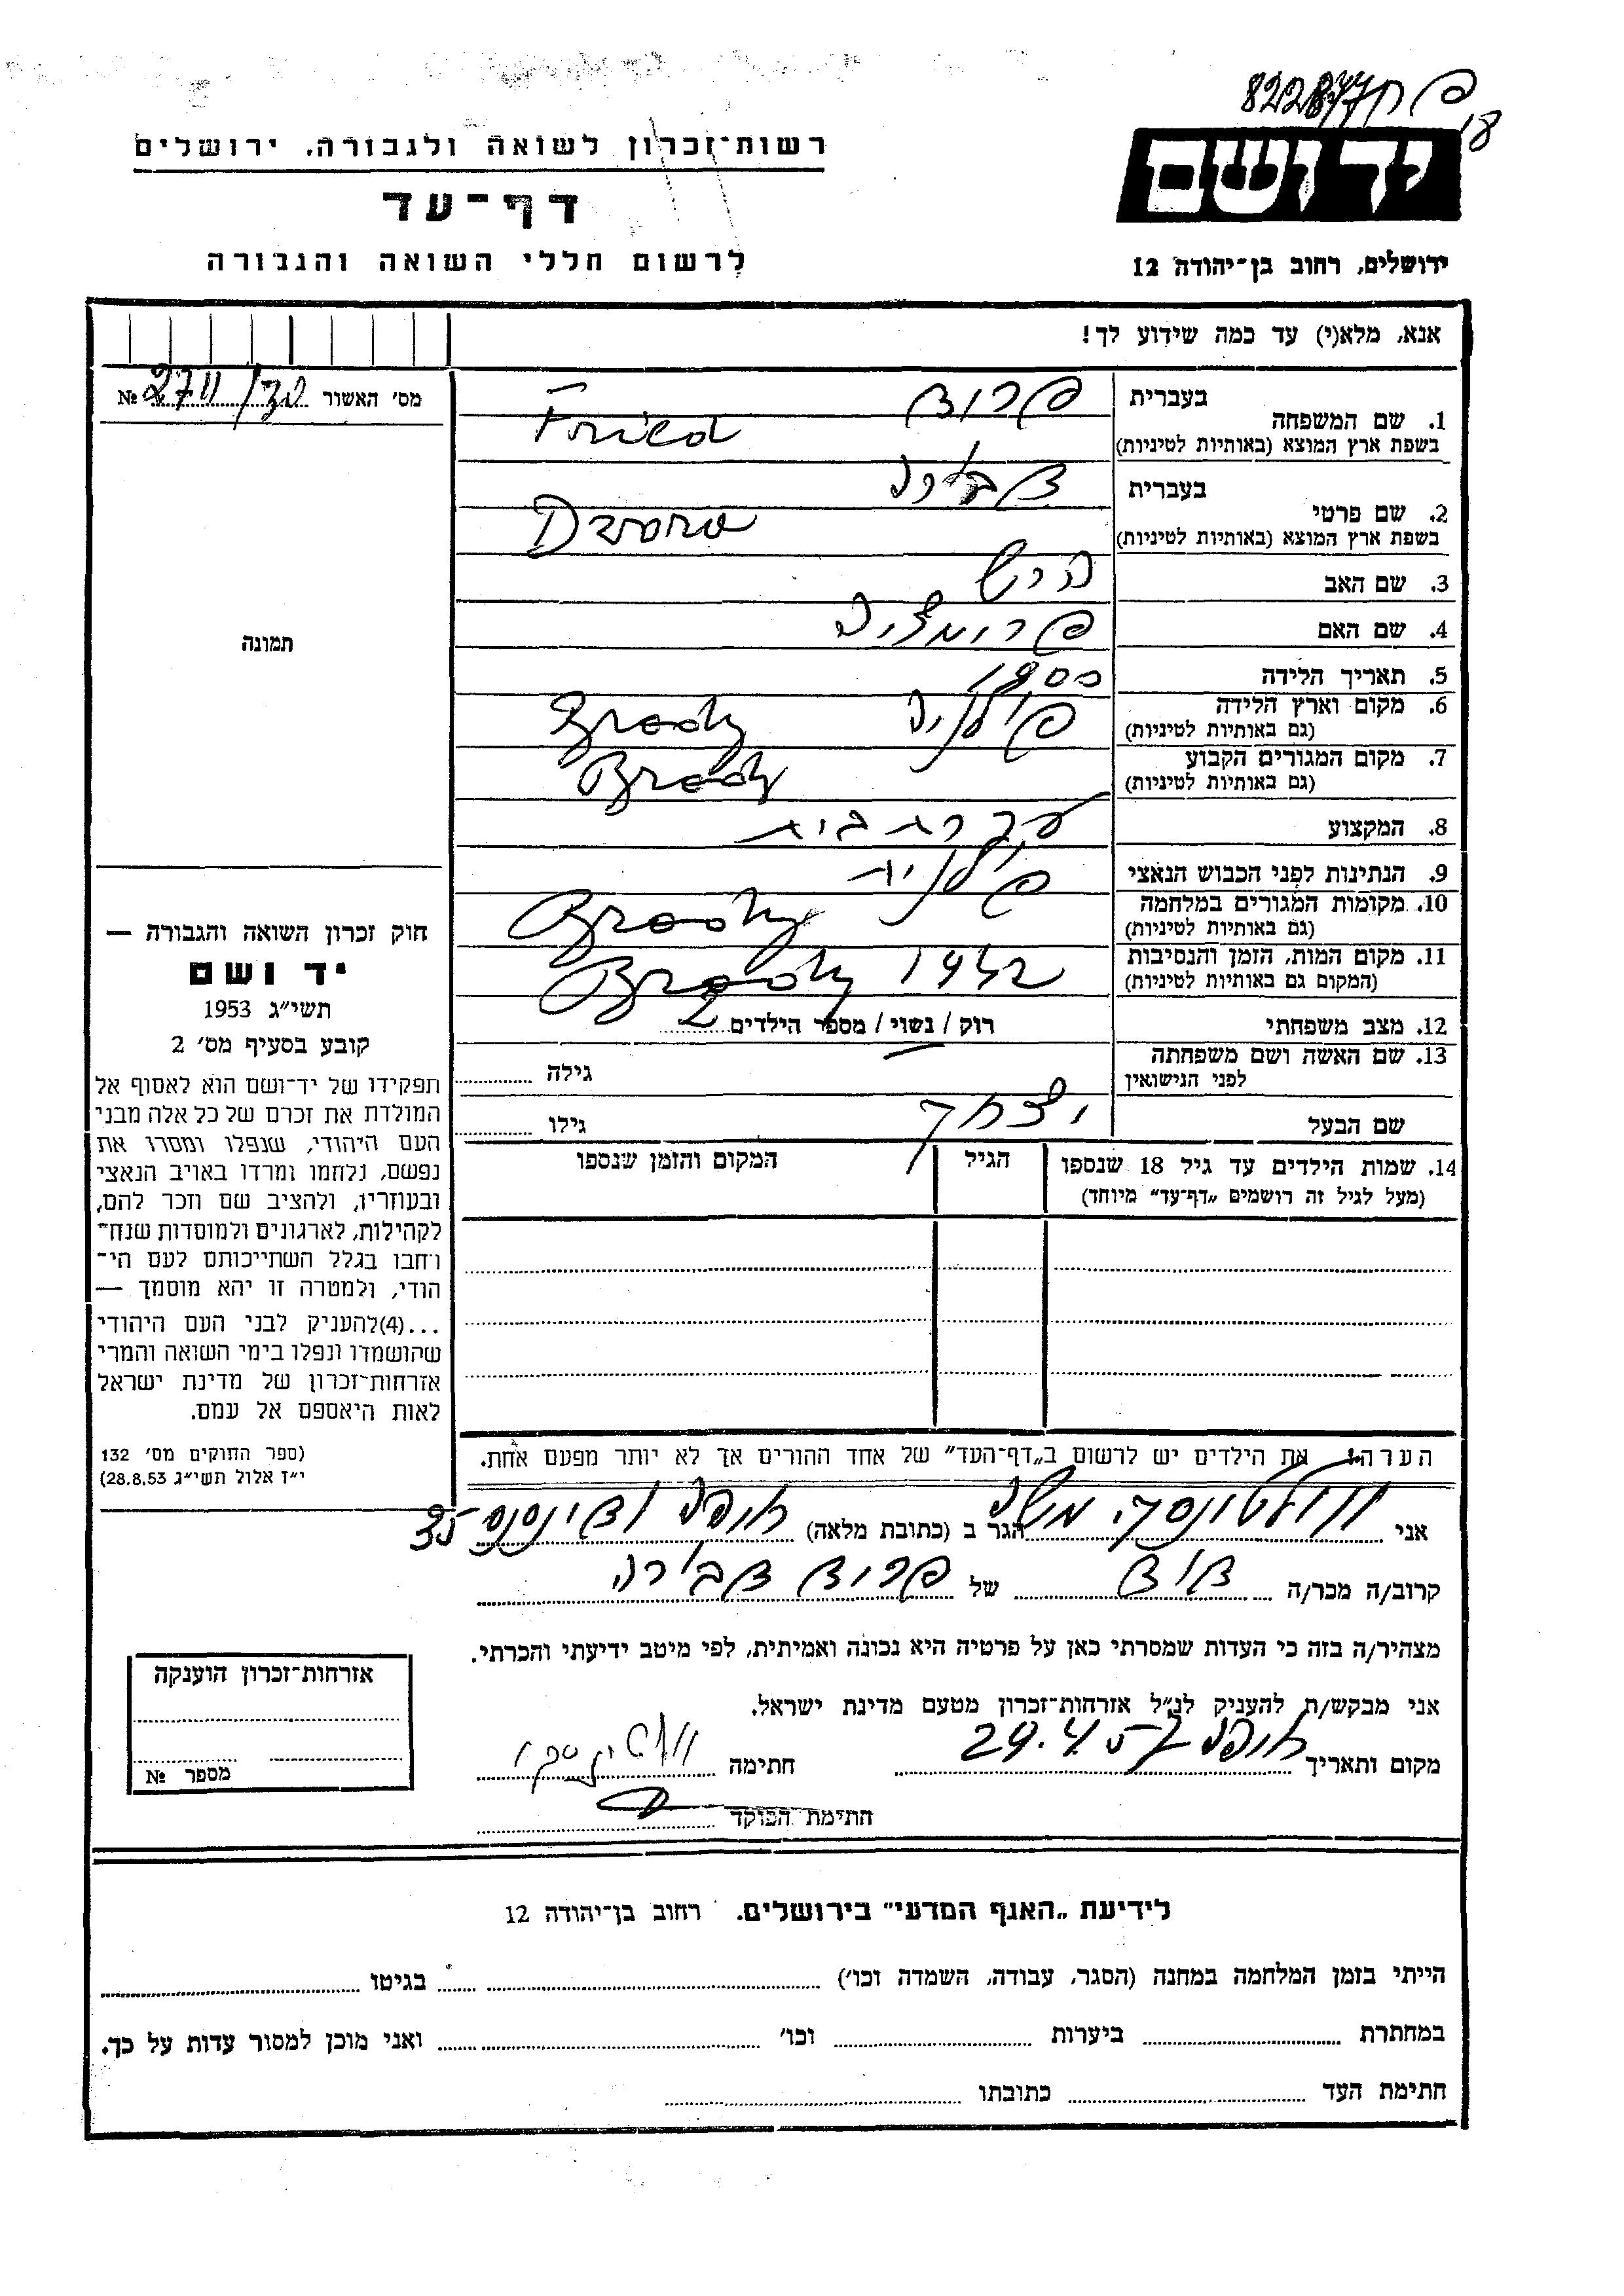 פח 822877
18
ידושם
רשות־זכרון לשואה ולגבורה. ירושלים
דף־עד
לרשום חללי השואה והגבורה
ירושלים, רחוב בן־יהודה 12
אנא, מלא(י) עד כמה שידוע לך!
מס׳ האשור
№ 2711/
תמונה
חוק זכרון השואה והגבורה —
יד ושם
תשי״ג 1953
קובע בסעיף מס׳ 2
תפקידו של יד־ושם הוא לאסוף אל
המולדת את זכרם של כל אלה מבני
העם היהודי, שנפלו ומסרו את
נפשם, נלחמו ומרדו באויב הנאצי
ובעוזריו, ולהציב שם וזכר להם,
לקהילות, לארגונים ולמוסדות שנח־
רחבו בגלל השתייכותם לעם הי־
הודי, ולמטרה זו יהא מוסמך —
...(4)להעניק לבני העם היהודי
שהושמדו ונפלו בימי השואה והמרי
אזרחות־זכרון של מדינת ישראל
לאות היאספם אל עמם.
(ספר החוקים מס׳ 132
י״ז אלול תשי״ג 28.8.53)
1. שם המשפחה
בעברית פרוד
בשפת ארץ המוצא (באותיות לטיניות) Fried
2. שם פרטי
בעברית דבורה
בשפת ארץ המוצא (באותיות לטיניות) Dwora
3. שם האב הירש
4. שם האם
5. תאריך הלידה 1900
6. מקום וארץ הלידה פולניה Brody
(גם באותיות לטיניות)
7. מקום המגורים הקבוע Brody
(גם באותיות לטיניות)
8. המקצוע עקרת בית
9. הנתינות לפני הכבוש הנאצי פולנית
10. מקומות המגורים במלחמה Brody
(גם באותיות לטיניות)
11. מקום המות, הזמן והנסיבות Brody 1942
(המקום גם באותיות לטיניות)
12. מצב משפחתי רוק / נשוי / מספר הילדים 2
13. שם האשה ושם משפחתה
לפני הנישואין גילה
שם הבעל יצחק גילו
14. שמות הילדים עד גיל 18 שנספו הגיל המקום והזמן שנספו
(מעל לגיל זה רושמים „דף־עד״ מיוחד)
הערה! את הילדים יש לרשום ב„דף־העד״ של אחד ההורים אך לא יותר מפעם אחת.
אני משה הגר ב (כתובת מלאה) חיפה 35
קרוב/ה מכר/ה דוד של פרוד דבורה
מצהיר/ה בזה כי העדות שמסרתי כאן על פרטיה היא נכונה ואמיתית, לפי מיטב ידיעתי והכרתי.
אני מבקש/ת להעניק לנ״ל אזרחות־זכרון מטעם מדינת ישראל.
מקום ותאריך חיפה 29.4.57 חתימה
חתימת הפוקד
אזרחות־זכרון הוענקה
מספר №
לידיעת „האגף המדעי״ בירושלים. רחוב בן־יהודה 12
הייתי בזמן המלחמה במחנה (הסגר, עבודה, השמדה וכו׳) בגיטו
במחתרת ביערות וכו׳ ואני מוכן למסור עדות על כך.
חתימת העד כתובתו